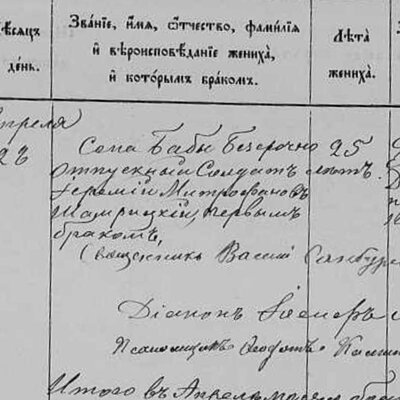 Мѣсяцъ
день.
Званіе, имя, отчество, фамилія
и вѣроисповѣданіе жениха,
и которымъ бракомъ.
Лѣта
жениха.
Апреля
22
Села Бабы Безсрочно
25
отпускный Солдатъ
лѣтъ.
Іеремій Митрофановъ
Шамрицкій, первымъ
бракомъ,
Священникъ Василій
Діаконъ
Псаломщикъ Ѳеодотъ
Итого въ Апрелѣ мѣсяцѣ